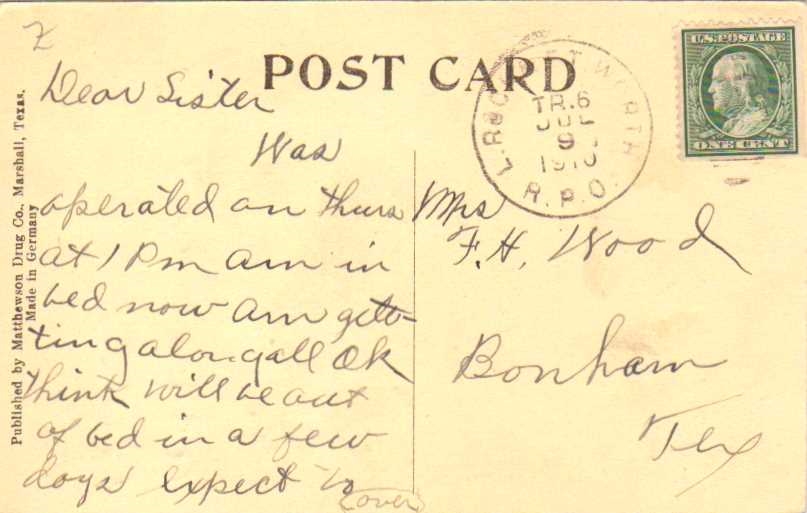 Z
POST CARD
Dear Sister
Was
operated on thurs
at 1 Pm am in
bed now am gett-
ing along all Ok
think will be out
of bed in a few
days expect to
(over)
Mrs
F. H. Wood
Bonham
Tex
TR. 6
JUL
9
1910
R.P.O.
WORTH
U.S. POSTAGE
ONE CENT
Published by Matthewson Drug Co., Marshall, Texas.
Made in Germany